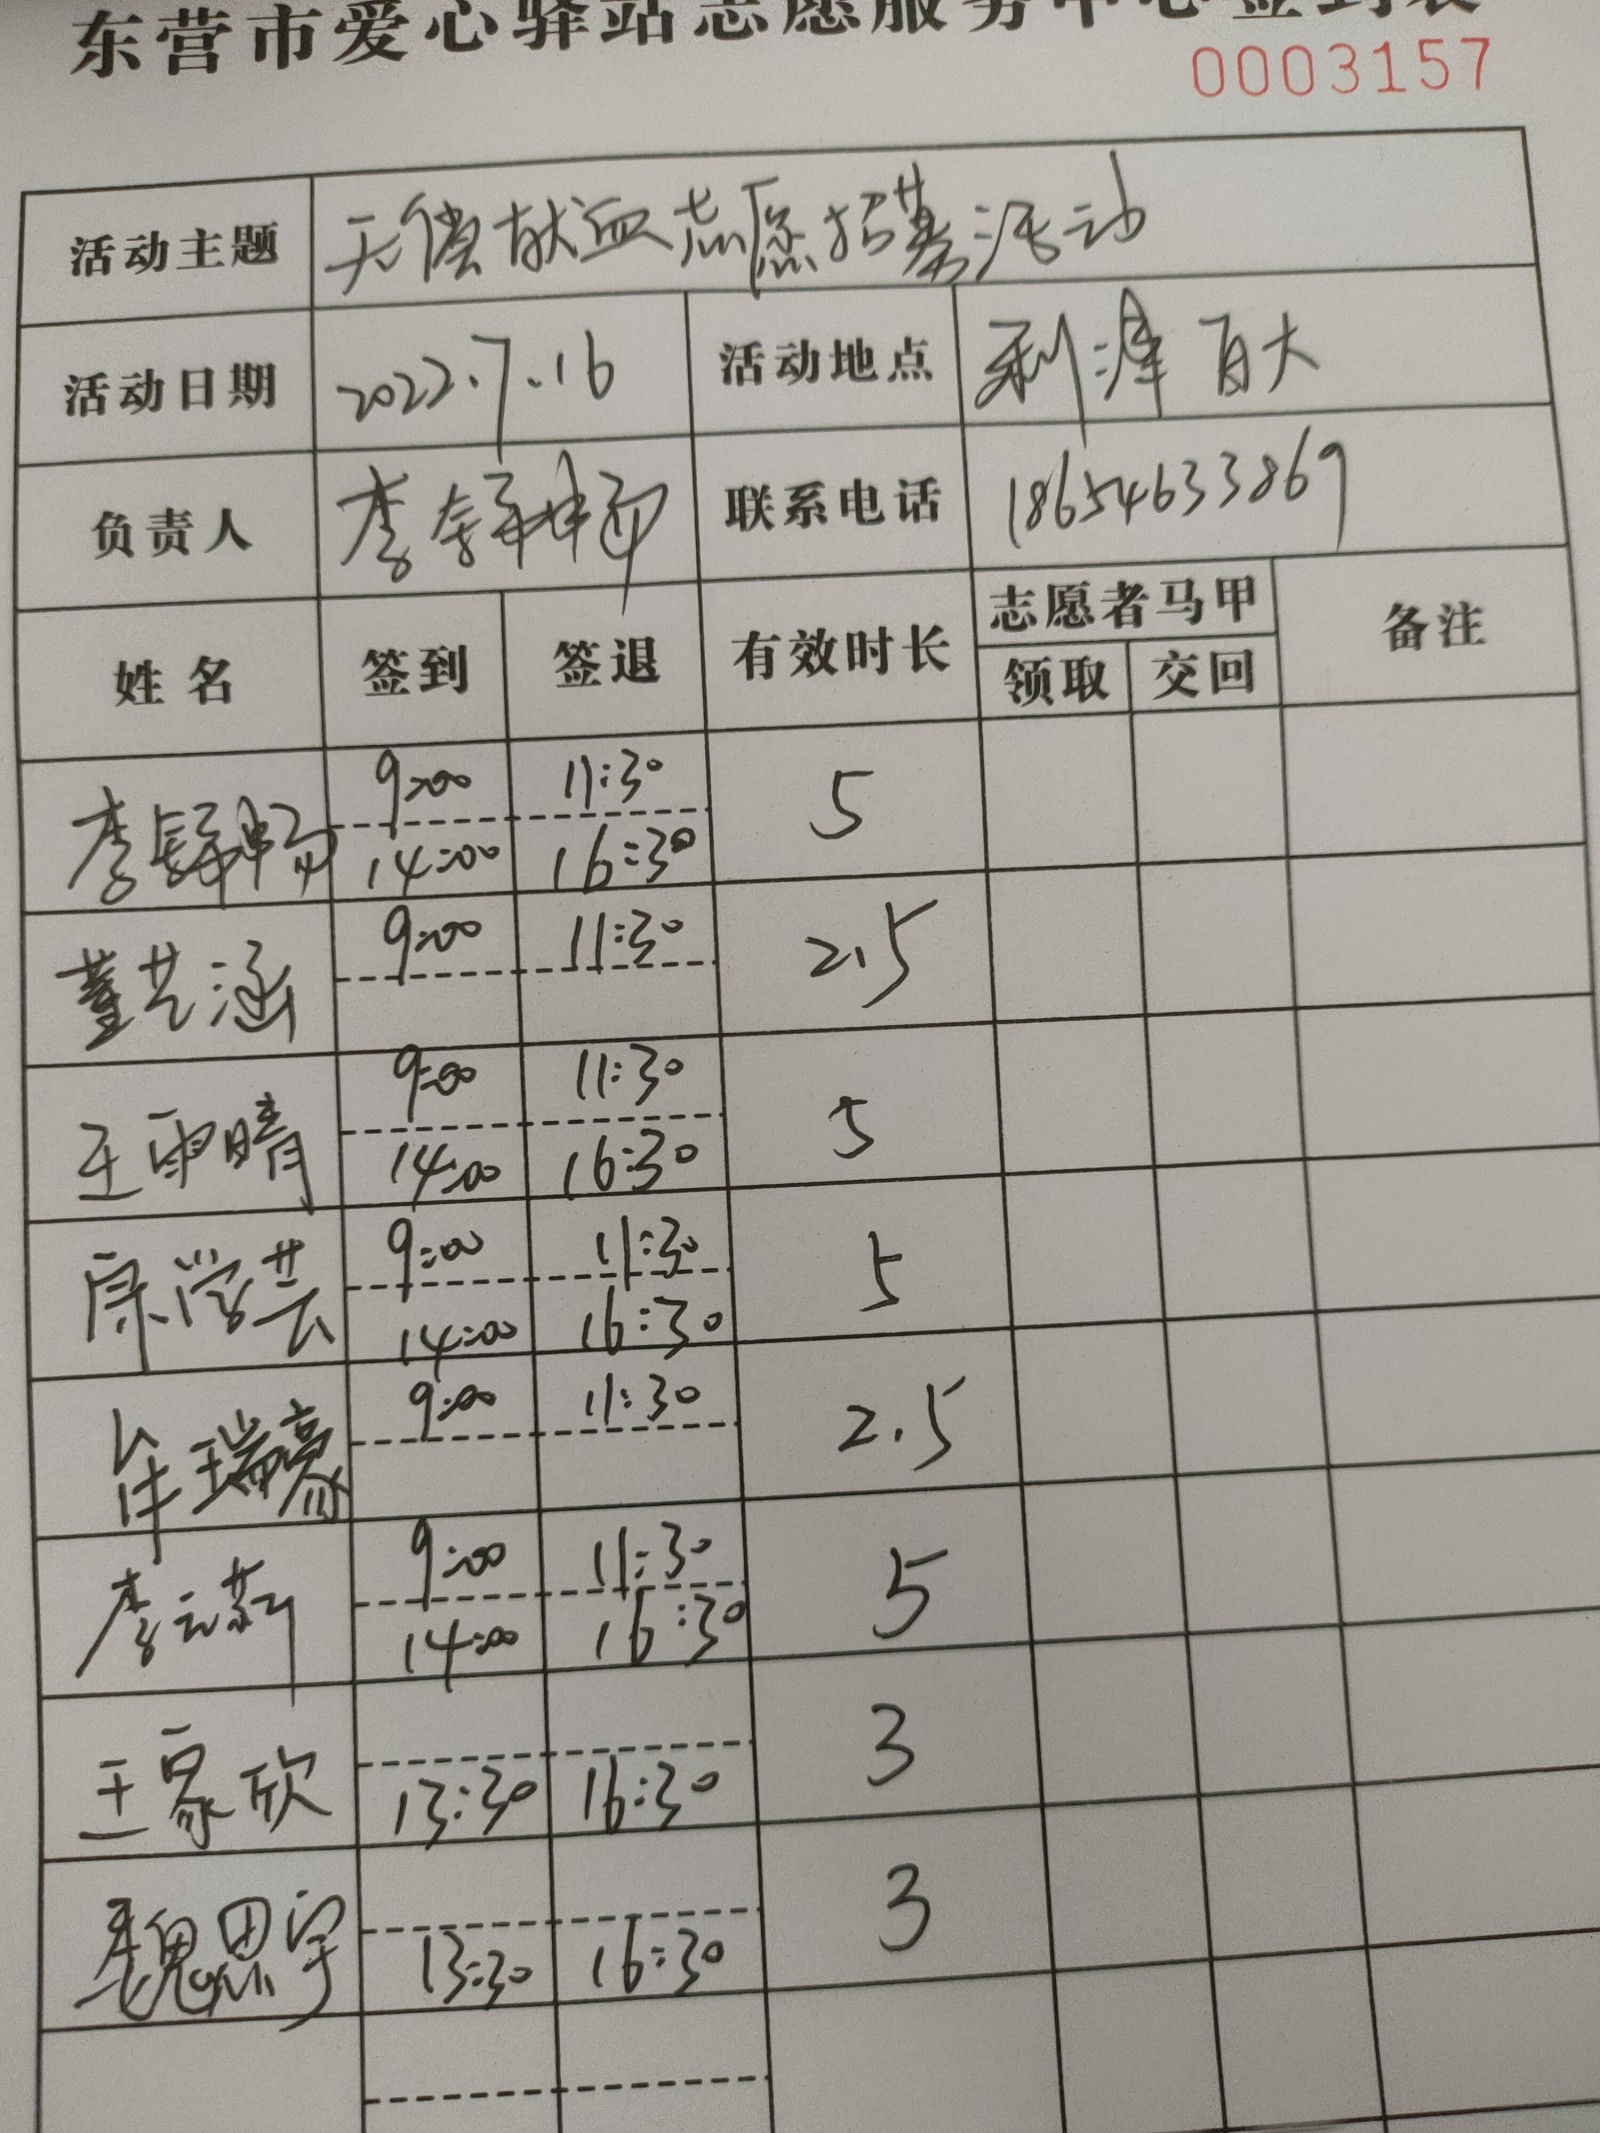 东营市爱心驿站志愿服务中心签到表
0003157
活动主题 无偿献血志愿招募活动
活动日期 2022.7.16 活动地点 利津百大
负责人 李舒畅 联系电话 18654633869
姓名 签到 签退 有效时长 志愿者马甲 备注
领取 交回
李舒畅 9:00 11:30 5
14:00 16:30
董艺涵 9:00 11:30 2.5
王雨晴 9:00 11:30 5
14:00 16:30
学芸 9:00 11:30 5
14:00 16:30
牟瑞豪 9:00 11:30 2.5
李云莉 9:00 11:30 5
14:00 16:30
王家欣 13:30 16:30 3
魏思宇 13:30 16:30 3